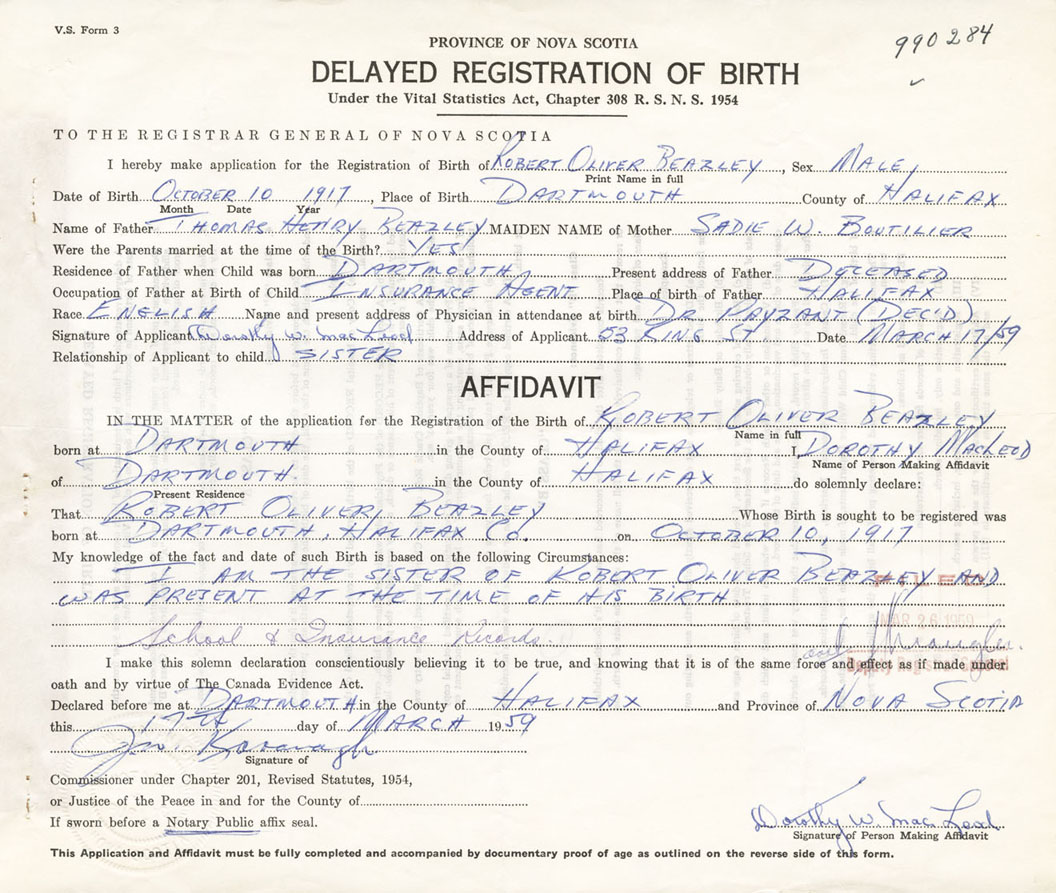 V.S. Form 3
990284
PROVINCE OF NOVA SCOTIA
DELAYED REGISTRATION OF BIRTH
Under the Vital Statistics Act, Chapter 308 R. S. N. S. 1954
TO THE REGISTRAR GENERAL OF NOVA SCOTIA
I hereby make application for the Registration of Birth of ROBERT OLIVER BEAZLEY, Sex MALE
Print Name in full
Date of Birth OCTOBER 10 1917, Place of Birth DARTMOUTH County of HALIFAX
Month Date Year
Name of Father THOMAS HENRY BEAZLEY MAIDEN NAME of Mother SADIE W. BOUTILIER
Were the Parents married at the time of the Birth? YES
Residence of Father when Child was born DARTMOUTH Present address of Father DECEASED
Occupation of Father at Birth of Child INSURANCE AGENT Place of birth of Father HALIFAX
Race ENGLISH Name and present address of Physician in attendance at birth DR. PAYZANT (DEC'D)
Signature of Applicant Dorothy W. MacLeod Address of Applicant 53 KING ST. Date MARCH 17/59
Relationship of Applicant to child SISTER
AFFIDAVIT
IN THE MATTER of the application for the Registration of the Birth of ROBERT OLIVER BEAZLEY
Name in full
born at DARTMOUTH in the County of HALIFAX I, DOROTHY MACLEOD
Name of Person Making Affidavit
of DARTMOUTH in the County of HALIFAX do solemnly declare:
Present Residence
That ROBERT OLIVER BEAZLEY Whose Birth is sought to be registered was
born at DARTMOUTH, HALIFAX CO. on OCTOBER 10, 1917
My knowledge of the fact and date of such Birth is based on the following Circumstances:
I AM THE SISTER OF ROBERT OLIVER BEAZLEY AND
WAS PRESENT AT THE TIME OF HIS BIRTH
MAR 26 1959
School & Insurance Records.
I make this solemn declaration conscientiously believing it to be true, and knowing that it is of the same force and effect as if made under
oath and by virtue of The Canada Evidence Act.
Declared before me at DARTMOUTH in the County of HALIFAX and Province of NOVA SCOTIA
this 17TH day of MARCH 1959
Kavanagh
Signature of
Commissioner under Chapter 201, Revised Statutes, 1954,
or Justice of the Peace in and for the County of
If sworn before a Notary Public affix seal.
Dorothy W. MacLeod
Signature of Person Making Affidavit
This Application and Affidavit must be fully completed and accompanied by documentary proof of age as outlined on the reverse side of this form.